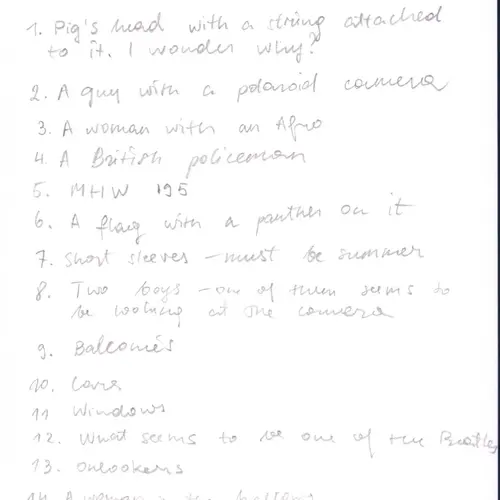 1. Pig's head with a string attached
to it. I wonder why?
2. A guy with a polaroid camera
3. A woman with an Afro
4. A British policeman
5. MHW 195
6. A flag with a panther on it
7. Short sleeves - must be summer
8. Two boys - one of them seems to
be looking at the camera
9. Balconies
10. Cars
11 Windows
12. What seems to be one of the Beatles
13. Onlookers
14. A woman